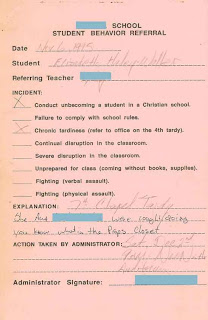 SCHOOL
STUDENT BEHAVIOR REFERRAL
Date Nov. 6, 1995
Student Elizabeth
Referring Teacher
INCIDENT:
X Conduct unbecoming a student in a Christian school.
Failure to comply with school rules.
X Chronic tardiness (refer to office on the 4th tardy).
Continual disruption in the classroom.
Severe disruption in the classroom.
Unprepared for class (coming without books, supplies).
Fighting (verbal assault).
Fighting (physical assault).
EXPLANATION: 7th Chapel Tardy
She and were doing
you know what in the Props Closet
ACTION TAKEN BY ADMINISTRATOR:
Administrator Signature: